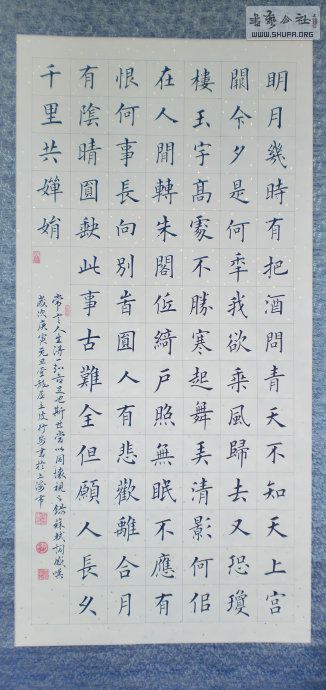 書藝公社
WWW.SHUFA.ORG
明月幾時有把酒問青天不知天上宮
闕今夕是何秊我欲乘風歸去又恐瓊
樓玉宇高處不勝寒起舞弄清影何佀
在人間轉朱閣低綺戶照無眠不應有
恨何事長向別旹圓人有悲歡離合月
有陰晴圓缺此事古難全但願人長久
千里共嬋娟
人生得一知音足也斯世當以同懷視之錄蘇軾詞
歲次庚寅元旦書於上海市